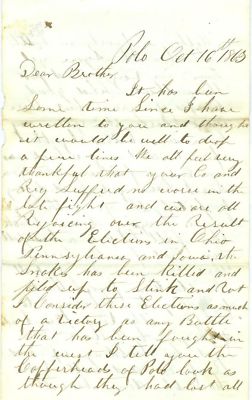 Polo Oct 16th 1863
Dear Brother
It has ben
Some time Since I have
written to you and thought
it would be well to drop
a fiew lines We all feel very
thankful that your Co and
Reg Suffered no worse in the
late fight and we are all
Rejoicing over the Result
of the Elections in Ohio
Pennsylvaney and Iowa, the
Snakes has been Killed and
pild up to Stink and Rot
I Consider these Elections as much
of a victory as any Battle
that has been fought in
the west I tell you the
Copperheads of Polo look as
though they had lost all